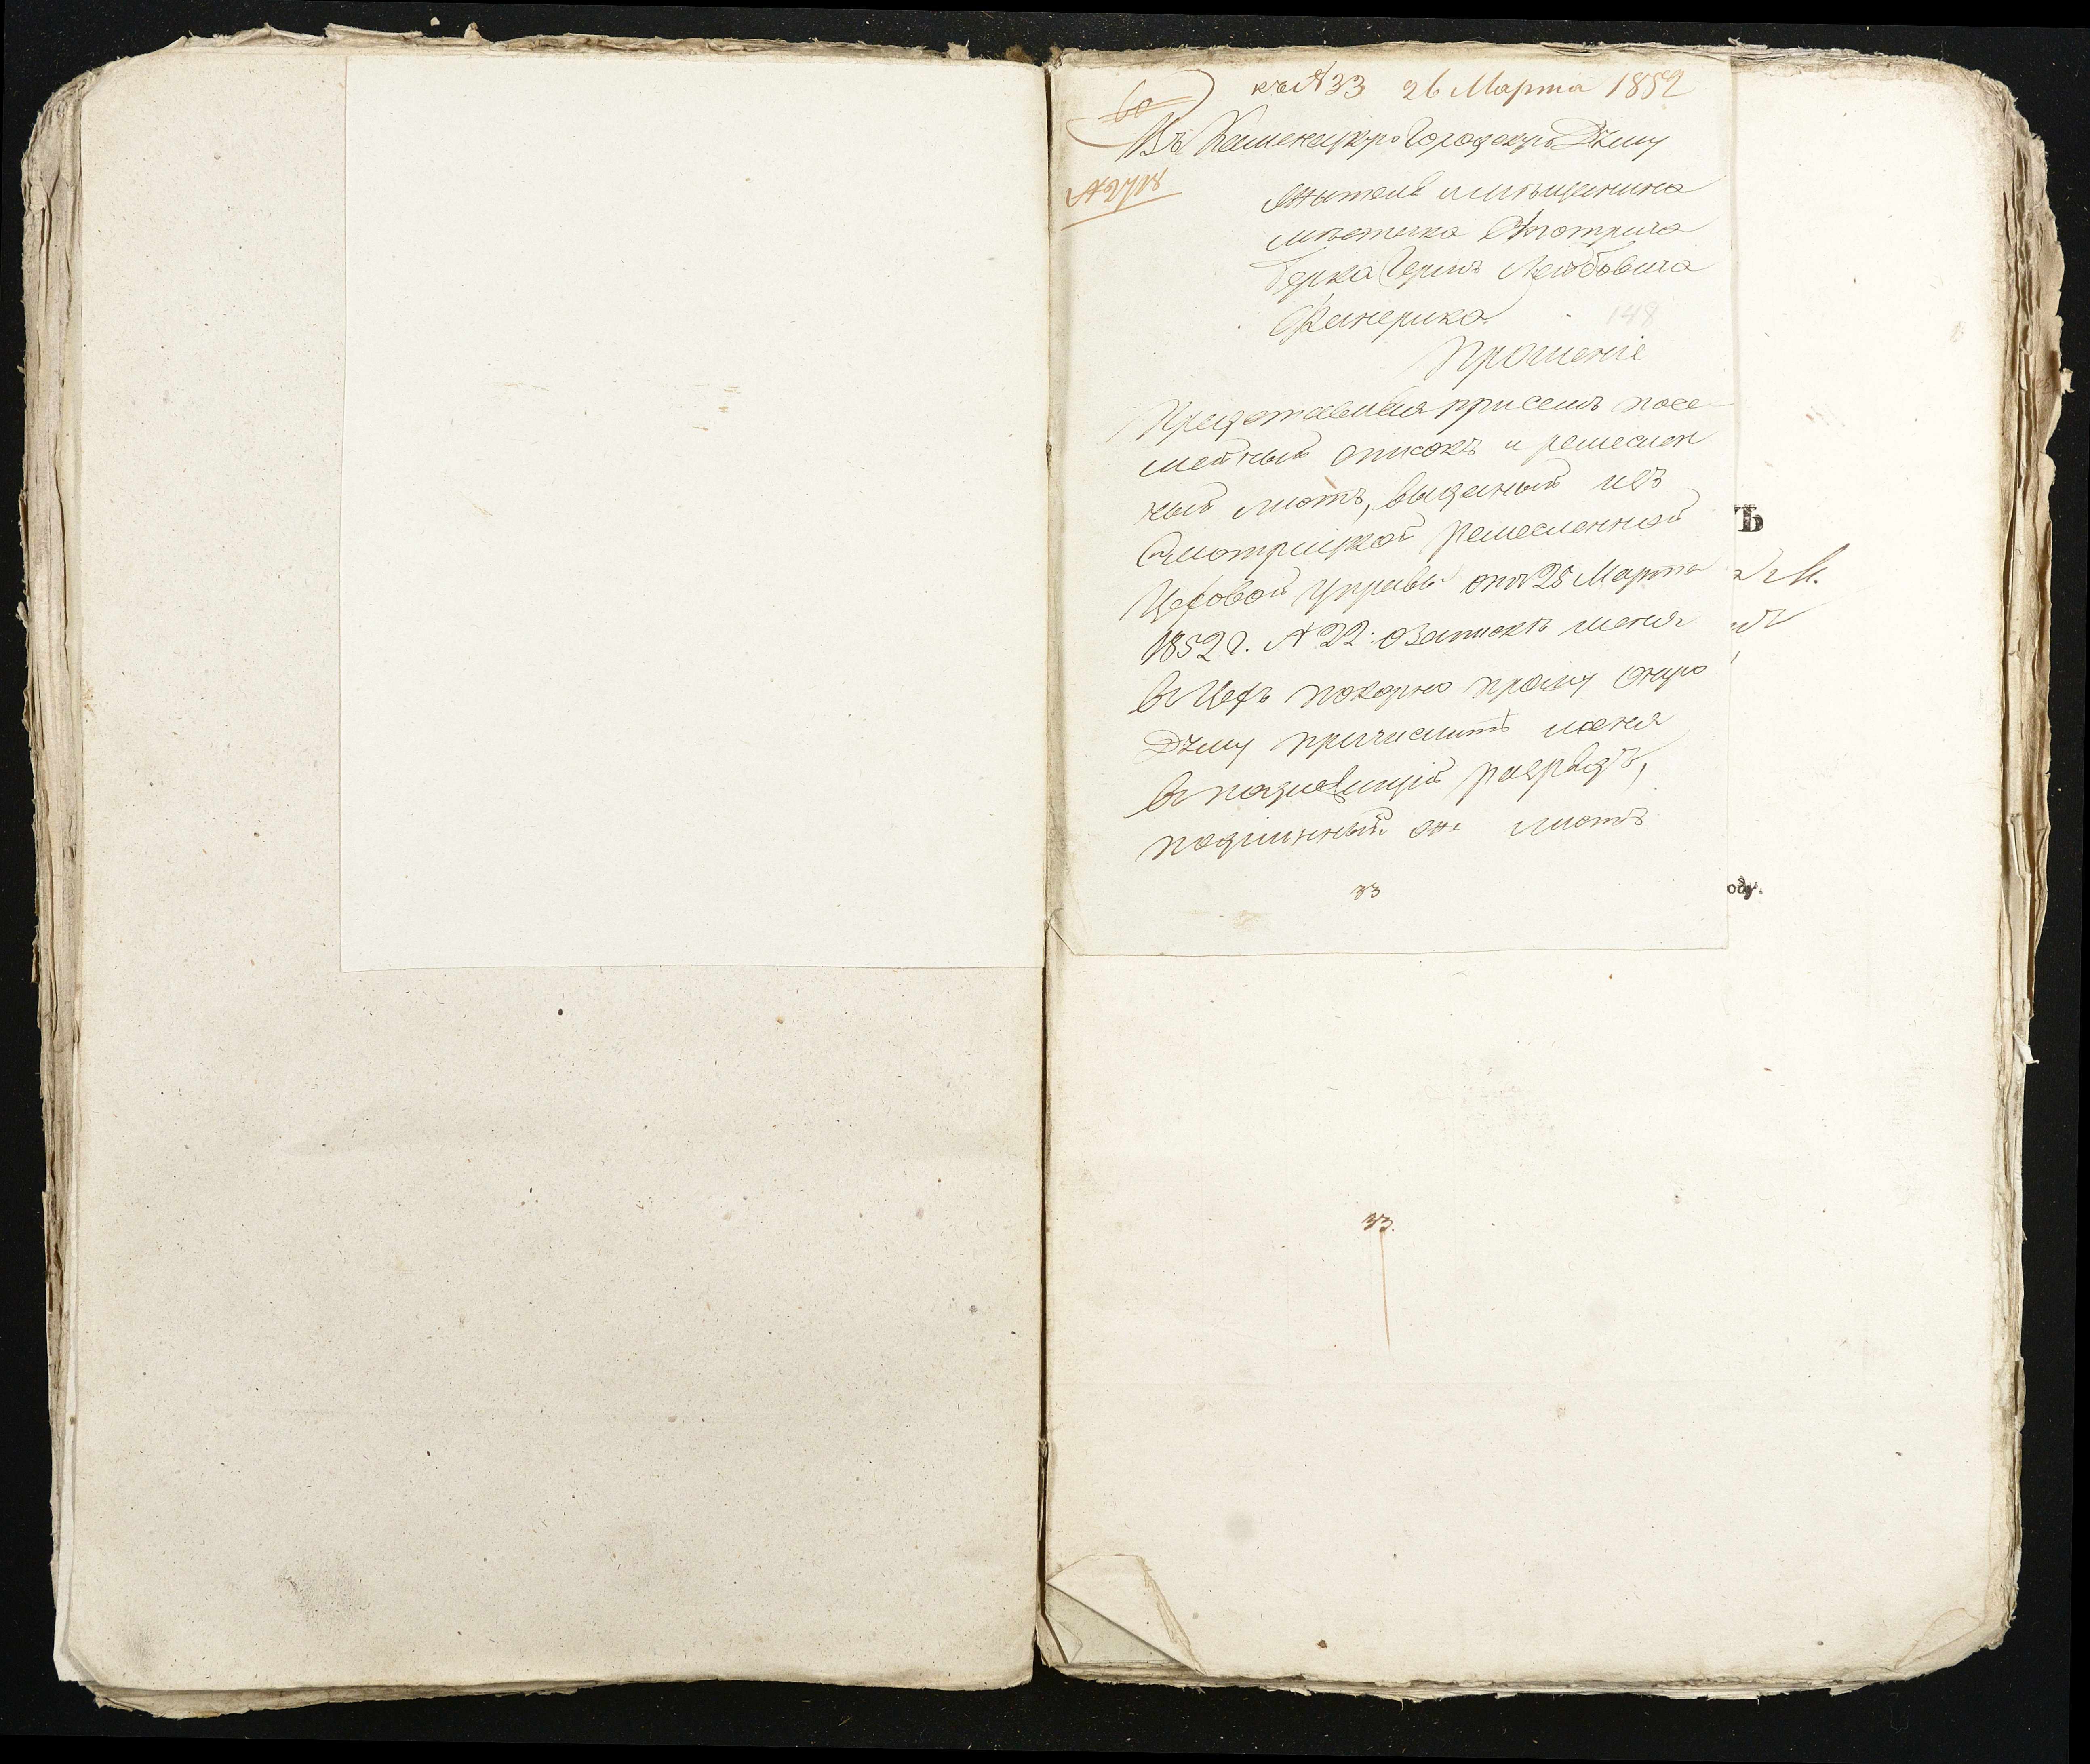 60
къ № 33 26 Марта 1852
Въ Каменецкую Городскую Думу
№ 2718
Жителя мѣщанина
мѣстечка Смотрича
Берка Герша Лейбовича
148
Прошеніе
Представляя при семъ посе
мейный списокъ и ремеслен
ный листъ, выданный изъ
Смотрицкой Ремесленной
Цеховой Управы отъ 25 Марта
1852 г. № 22. о запискѣ меня
въ Цехъ покорно прошу оную
Думу причислить меня
въ надлежащій разрядъ,
подлинный же листъ
33
Ъ
М.
оду.
33.